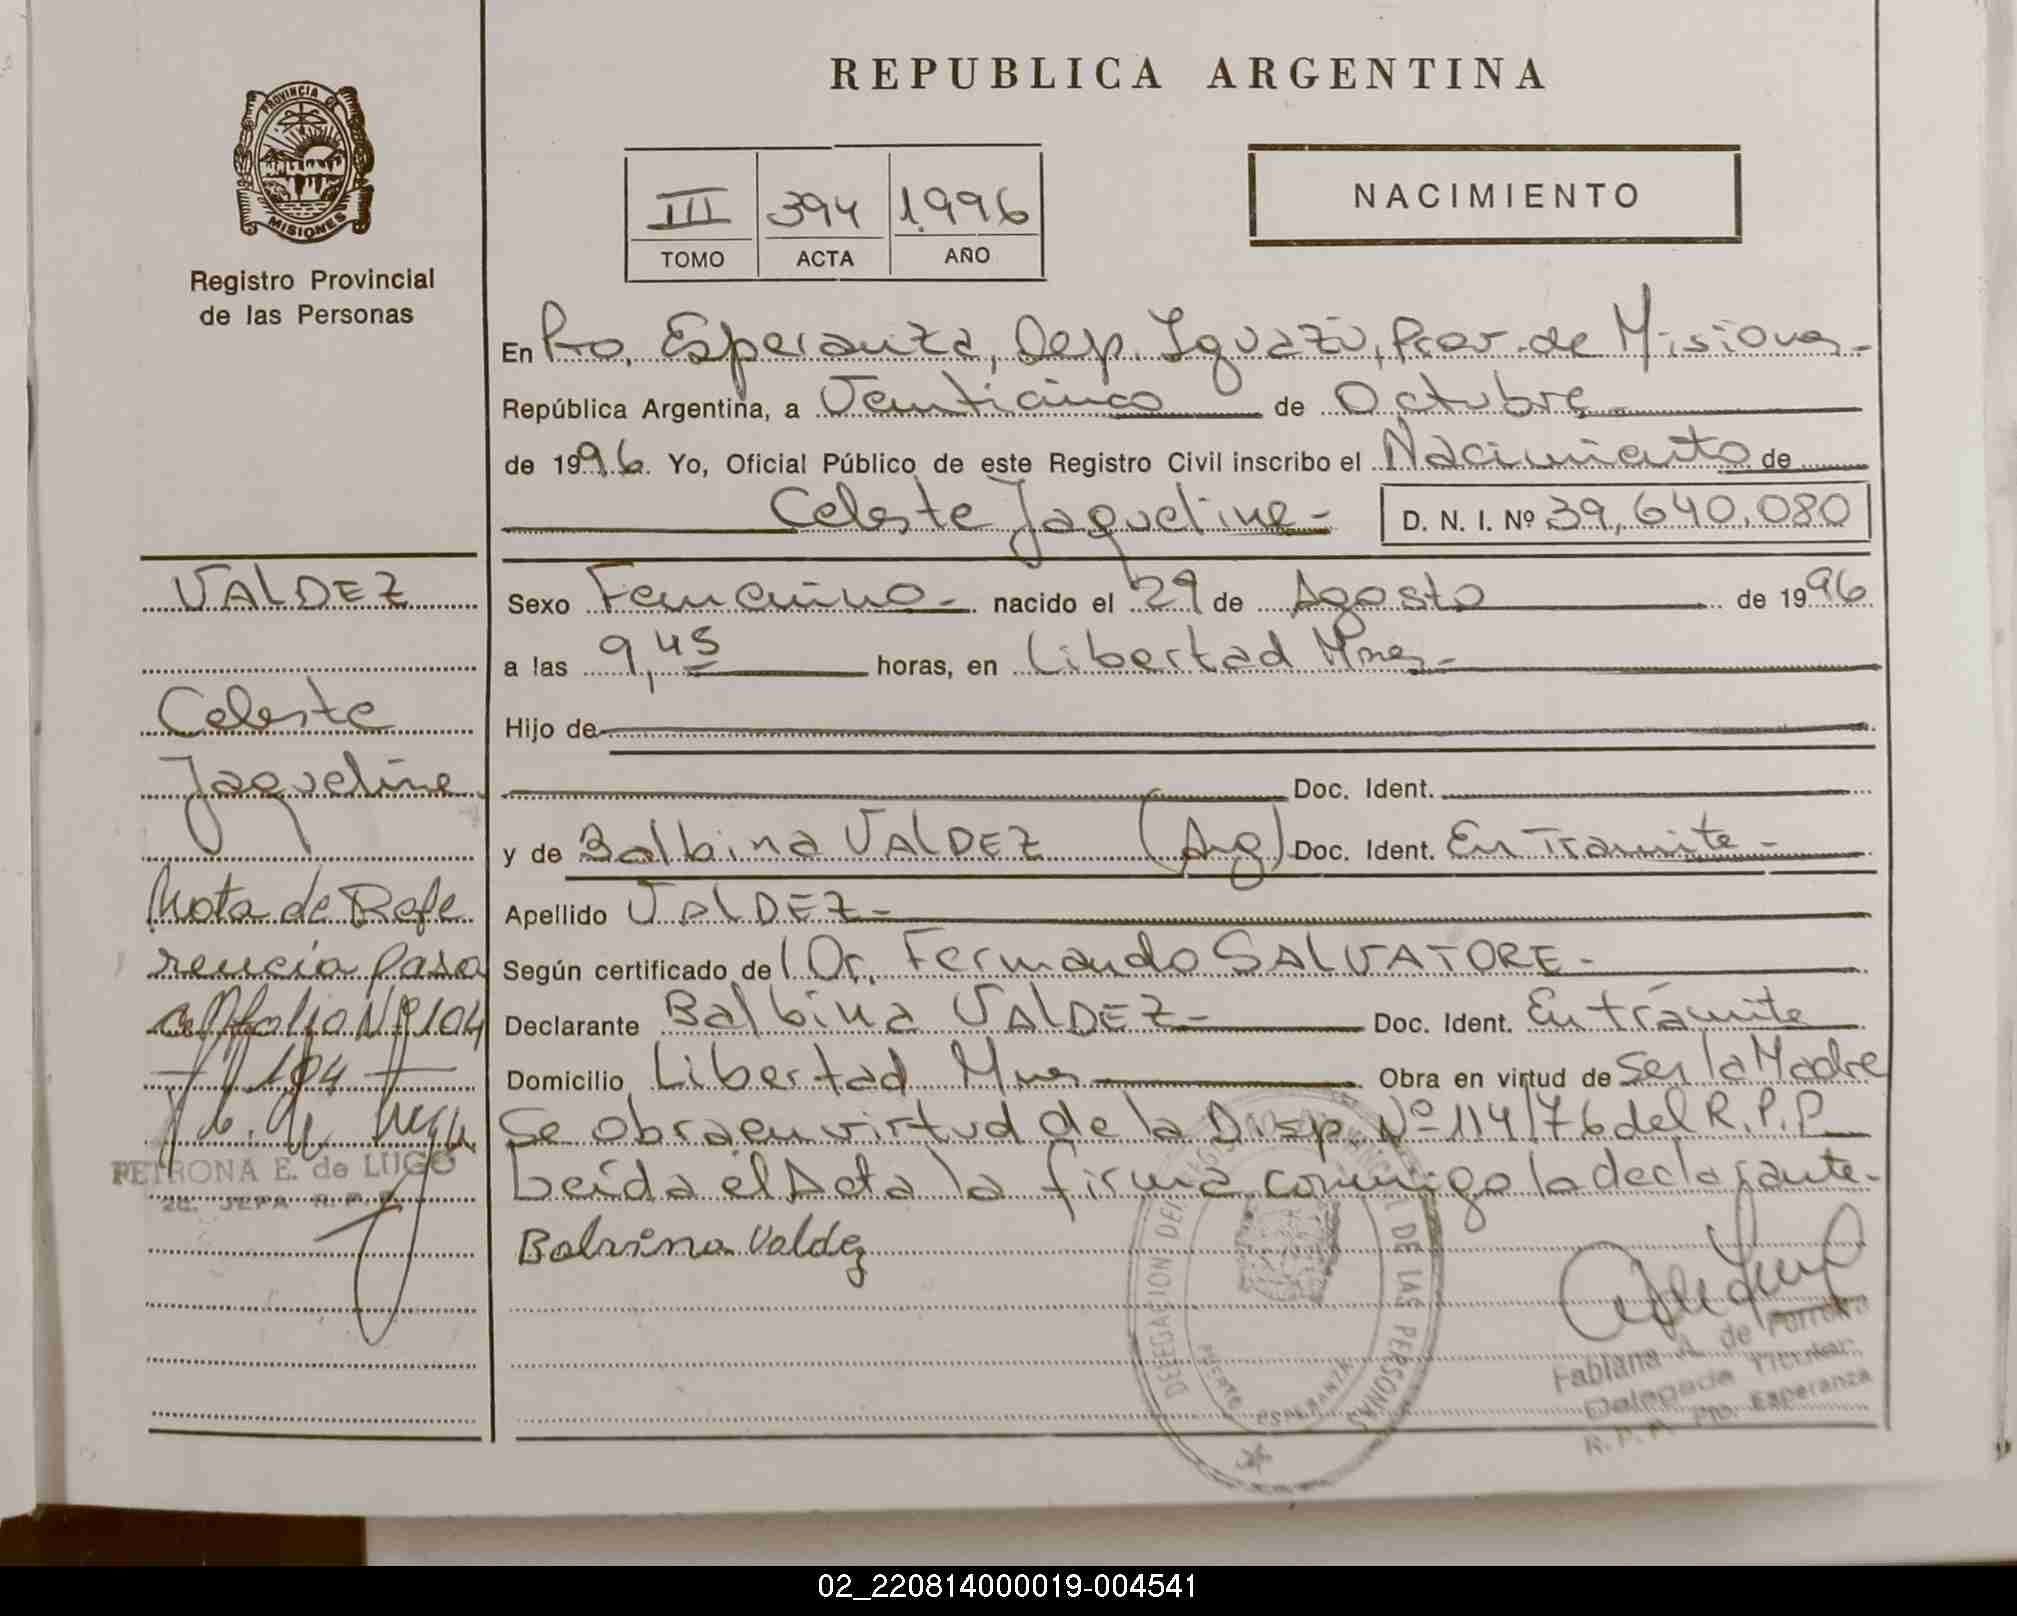 REPUBLICA ARGENTINA
PROVINCIA DE
MISIONES
Registro Provincial
de las Personas
III 394 1.996
TOMO ACTA AÑO
NACIMIENTO
En Pto. Esperanza, Dep. Iguazú, Prov. de Misiones-
República Argentina, a Venticinco de Octubre
de 1996. Yo, Oficial Público de este Registro Civil inscribo el Nacimiento de
Celeste Jaqueline- D. N. I. Nº 39,640,080
Sexo Femenino- nacido el 29 de Agosto de 1996
a las 9,45 horas, en Libertad Mnes-
Hijo de
Doc. Ident.
y de Balbina VALDEZ (Arg) Doc. Ident. En Tramite-
Apellido VALDEZ-
Según certificado de l Dr. Fernando SALVATORE-
Declarante Balbina VALDEZ- Doc. Ident. En trámite
Domicilio Libertad Mnes Obra en virtud de Ser la Madre
Se obra en virtud de la Disp. Nº 114/76 del R.P.P.
Leída el Acta la firma conmigo la declarante-
Balvina Valdez
VALDEZ
Celeste
Jaqueline
Nota de Refe
rencia pasa
al folio Nº 104
104
PETRONA E. de LUGO
2C. JEFA R.P.P.
DELEGACION DEL REGISTRO PROVINCIAL DE LAS PERSONAS
PUERTO ESPERANZA
Fabiana A. de
Delegada Titular
R.P.P. Pto. Esperanza
02_220814000019-004541